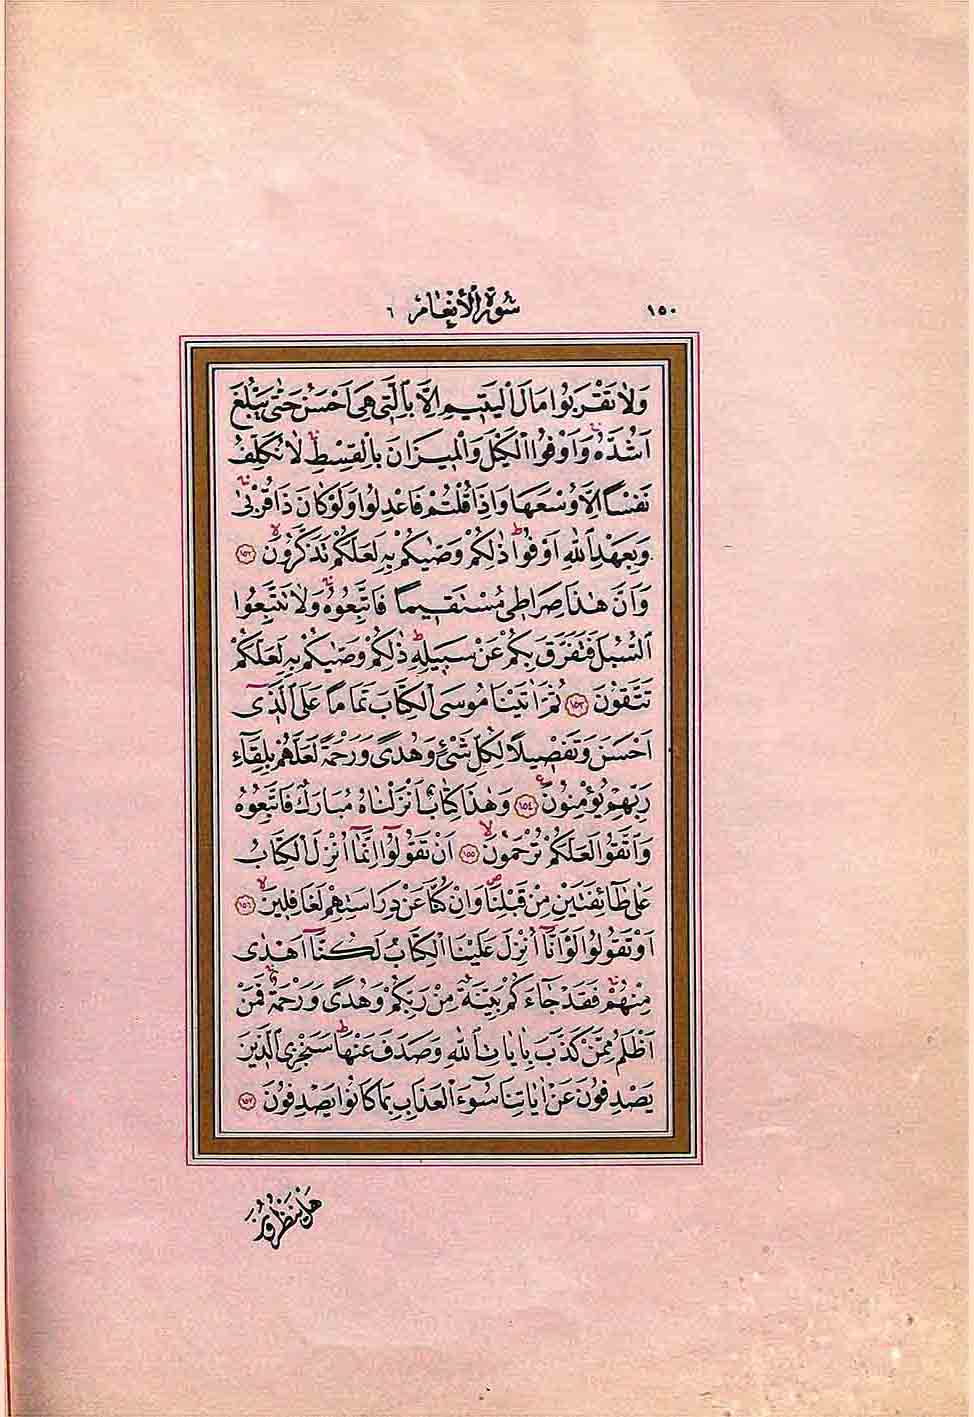 ١٥٠ سُورَةُ الْأَنْعَامِ ٦
وَلَا تَقْرَبُوا مَالَ الْيَتٖيمِ اِلَّا بِالَّتٖي هِيَ اَحْسَنُ حَتّٰى يَبْلُغَ
اَشُدَّهُ وَاَوْفُوا الْكَيْلَ وَالْمٖيزَانَ بِالْقِسْطِ لَا نُكَلِّفُ
نَفْسًا اِلَّا وُسْعَهَا وَاِذَا قُلْتُمْ فَاعْدِلُوا وَلَوْ كَانَ ذَا قُرْبٰى
وَبِعَهْدِ اللّٰهِ اَوْفُوا ذٰلِكُمْ وَصّٰيكُمْ بِهٖ لَعَلَّكُمْ تَذَكَّرُونَ ١٥٢
وَاَنَّ هٰذَا صِرَاطٖي مُسْتَقٖيمًا فَاتَّبِعُوهُ وَلَا تَتَّبِعُوا
السُّبُلَ فَتَفَرَّقَ بِكُمْ عَنْ سَبٖيلِهٖ ذٰلِكُمْ وَصّٰيكُمْ بِهٖ لَعَلَّكُمْ
تَتَّقُونَ ١٥٣ ثُمَّ اٰتَيْنَا مُوسَى الْكِتَابَ تَمَامًا عَلَى الَّذٖٓي
اَحْسَنَ وَتَفْصٖيلًا لِكُلِّ شَيْءٍ وَهُدًى وَرَحْمَةً لَعَلَّهُمْ بِلِقَٓاءِ
رَبِّهِمْ يُؤْمِنُونَ ١٥٤ وَهٰذَا كِتَابٌ اَنْزَلْنَاهُ مُبَارَكٌ فَاتَّبِعُوهُ
وَاتَّقُوا لَعَلَّكُمْ تُرْحَمُونَ ١٥٥ اَنْ تَقُولُٓوا اِنَّمَٓا اُنْزِلَ الْكِتَابُ
عَلٰى طَٓائِفَتَيْنِ مِنْ قَبْلِنَا وَاِنْ كُنَّا عَنْ دِرَاسَتِهِمْ لَغَافِلٖينَ ١٥٦
اَوْ تَقُولُوا لَوْ اَنَّٓا اُنْزِلَ عَلَيْنَا الْكِتَابُ لَكُنَّٓا اَهْدٰى
مِنْهُمْ فَقَدْ جَٓاءَكُمْ بَيِّنَةٌ مِنْ رَبِّكُمْ وَهُدًى وَرَحْمَةٌ فَمَنْ
اَظْلَمُ مِمَّنْ كَذَّبَ بِاٰيَاتِ اللّٰهِ وَصَدَفَ عَنْهَا سَنَجْزِي الَّذٖينَ
يَصْدِفُونَ عَنْ اٰيَاتِنَا سُٓوءَ الْعَذَابِ بِمَا كَانُوا يَصْدِفُونَ ١٥٧
هَلْ يَنْظُرُونَ